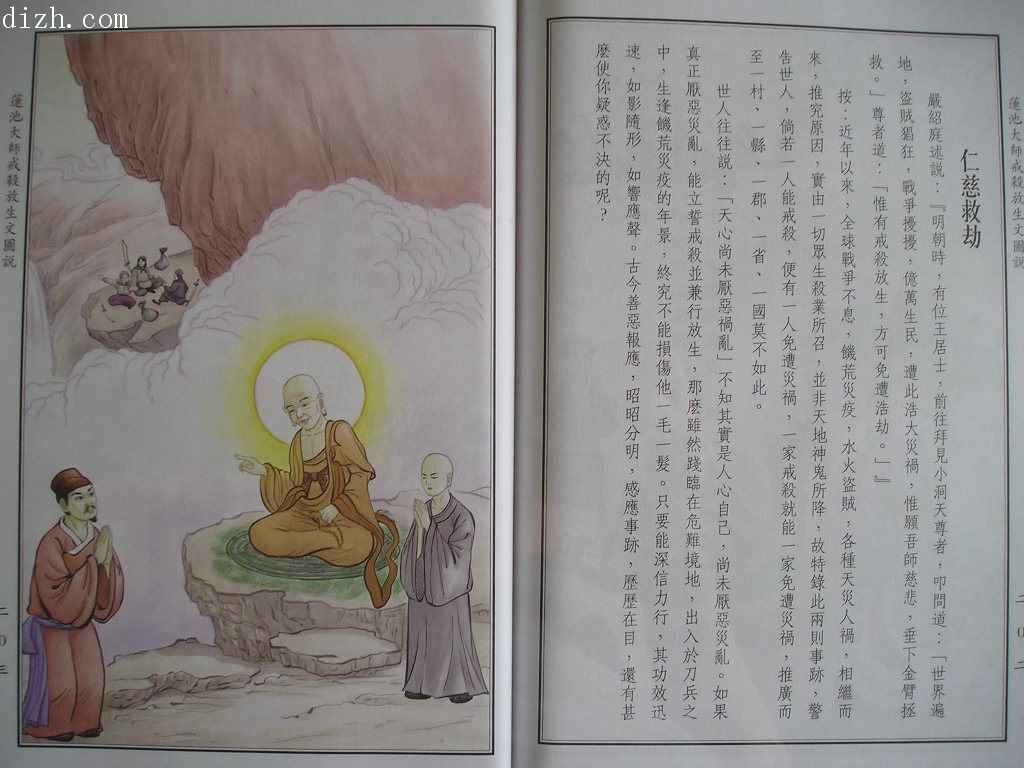 dizh.com
蓮池大師戒殺放生文圖説
二０二
仁慈救劫
嚴紹庭述説：『明朝時，有位王居士，前往拜見小洞天尊者，叩問道：「世界遍
地，盜賊猖狂，戰爭擾擾，億萬生民，遭此浩大災禍，惟願吾師慈悲，垂下金臂拯
救。」尊者道：「惟有戒殺放生，方可免遭浩劫。」』
按：近年以來，全球戰爭不息，饑荒災疫，水火盜賊，各種天災人禍，相繼而
來，推究原因，實由一切眾生殺業所召，並非天地神鬼所降，故特錄此兩則事跡，警
告世人，倘若一人能戒殺，便有一人免遭災禍，一家戒殺就能一家免遭災禍，推廣而
至一村、一縣、一郡、一省、一國莫不如此。
世人往往説：「天心尚未厭惡禍亂」不知其實是人心自己，尚未厭惡災亂。如果
真正厭惡災亂，能立誓戒殺並兼行放生，那麼雖然踐臨在危難境地，出入於刀兵之
中，生逢饑荒災疫的年景，終究不能損傷他一毛一髮。只要能深信力行，其功效迅
速，如影隨形，如響應聲。古今善惡報應，昭昭分明，感應事跡，歷歷在目，還有甚
麼使你疑惑不決的呢？
蓮池大師戒殺放生文圖説
二０三